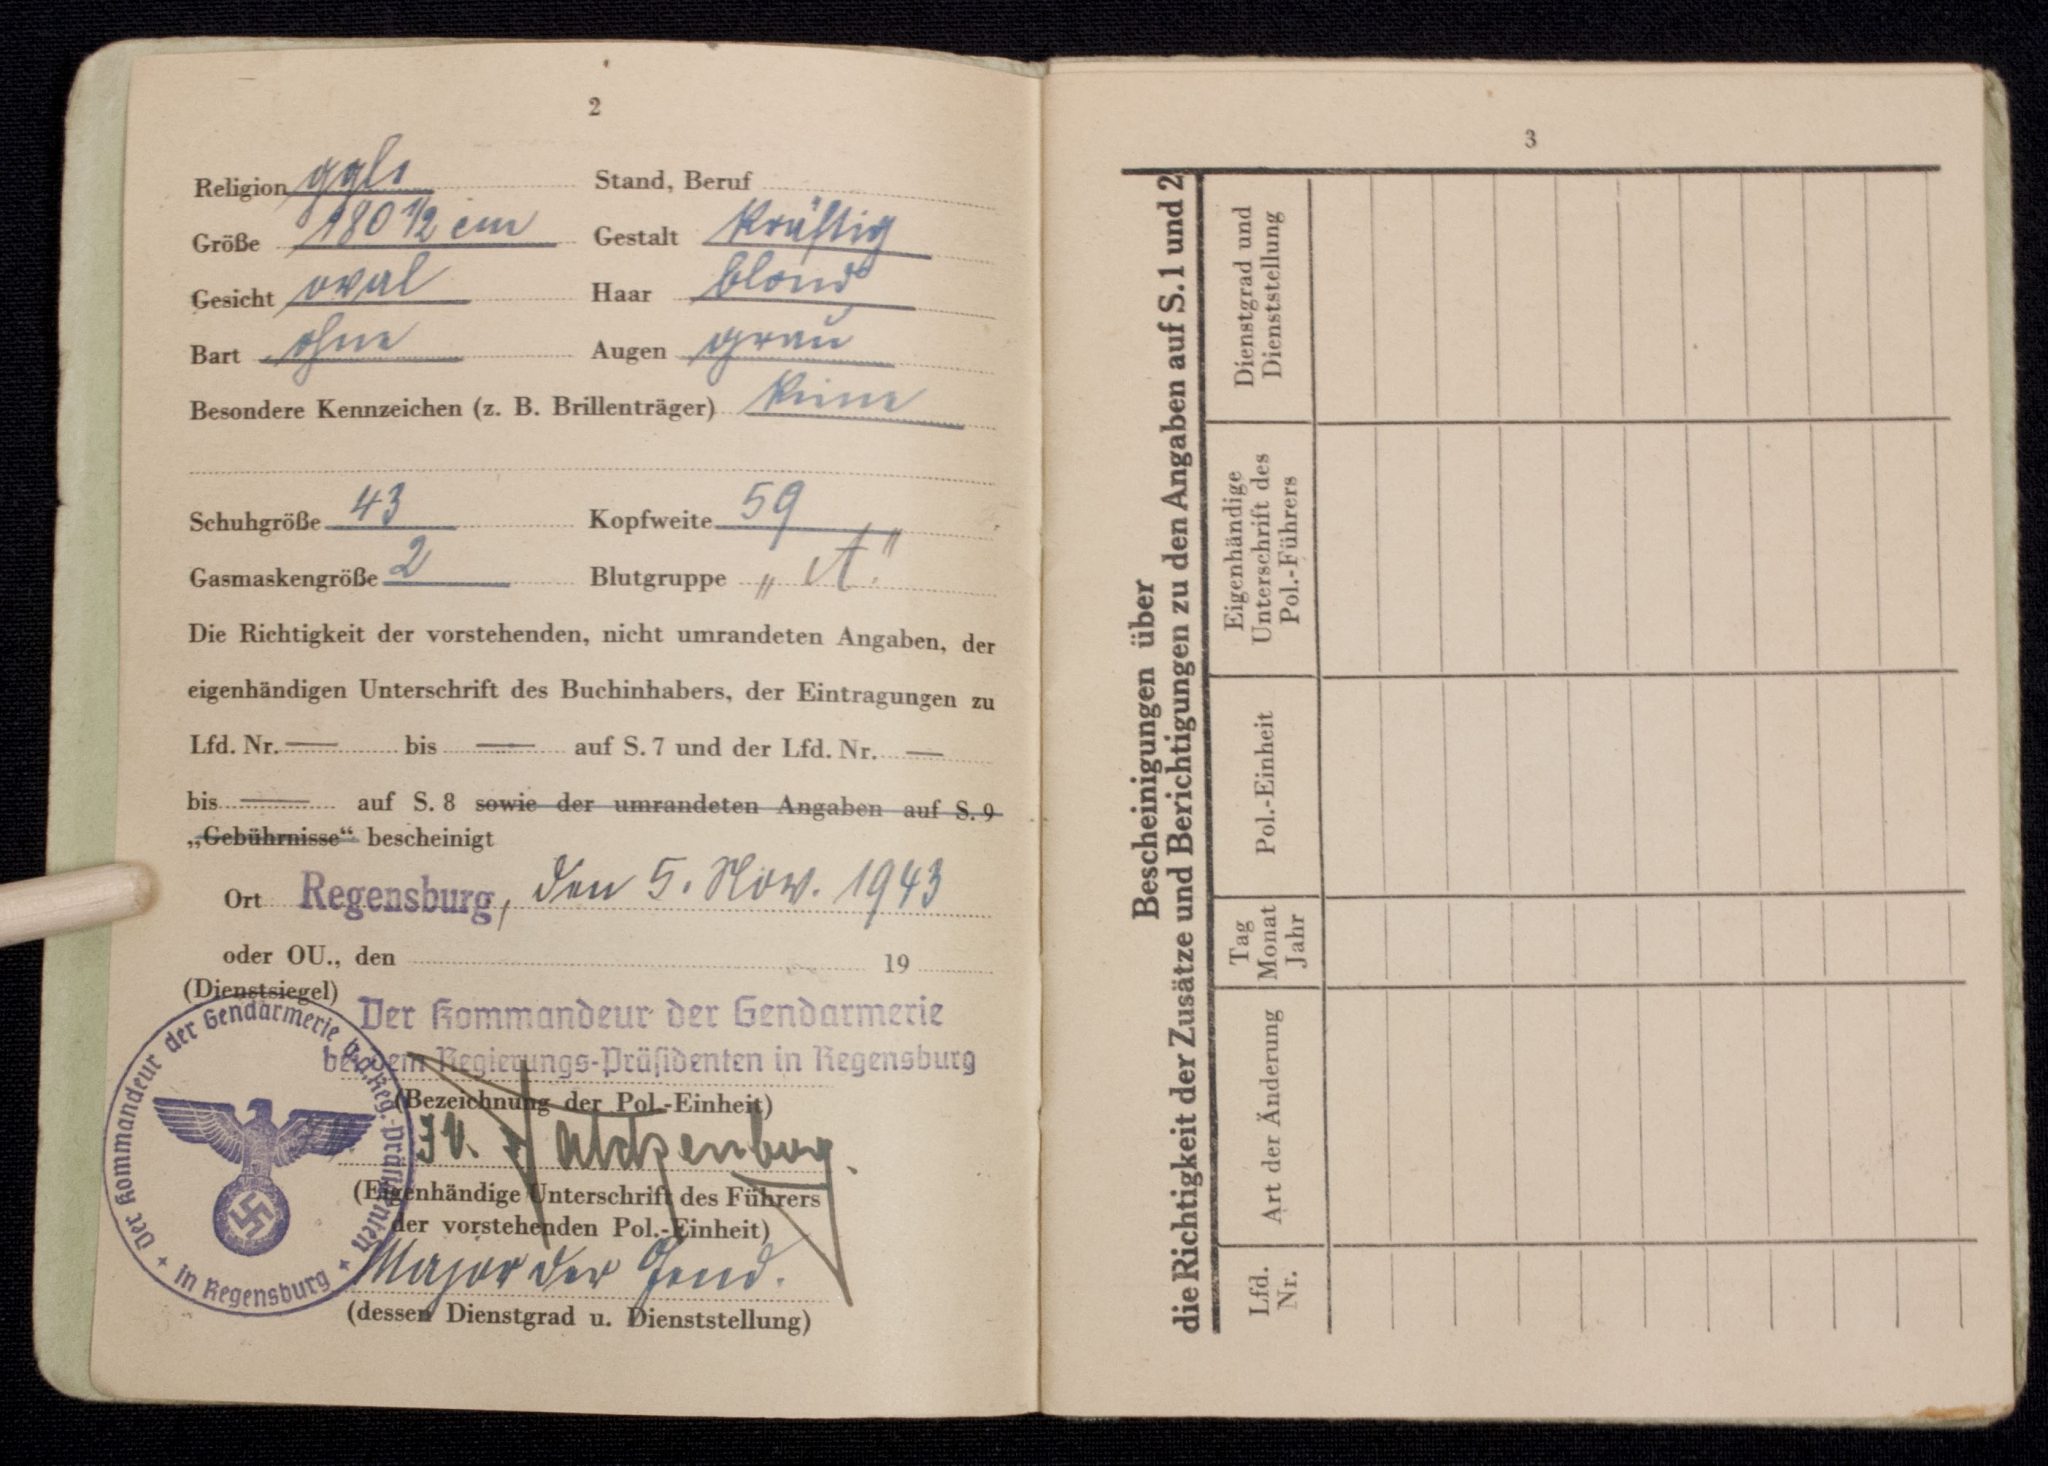 2
Religion ggl.
Stand, Beruf
Größe 180 1/2 cm
Gestalt kräftig
Gesicht oval
Haar blond
Bart ohne
Augen grau
Besondere Kennzeichen (z. B. Brillenträger) keine
Schuhgröße 43
Kopfweite 59
Gasmaskengröße 2
Blutgruppe „A“
Die Richtigkeit der vorstehenden, nicht umrandeten Angaben, der
eigenhändigen Unterschrift des Buchinhabers, der Eintragungen zu
Lfd. Nr. — bis — auf S. 7 und der Lfd. Nr. —
bis — auf S. 8 sowie der umrandeten Angaben auf S. 9
„Gebührnisse“ bescheinigt
Ort Regensburg, den 5. Nov. 1943
oder OU., den 19
(Dienstsiegel)
Der Kommandeur der Gendarmerie
bei dem Regierungs-Präsidenten in Regensburg
(Bezeichnung der Pol.-Einheit)
I.V.
(Eigenhändige Unterschrift des Führers
der vorstehenden Pol.-Einheit)
Major der Gend.
(dessen Dienstgrad u. Dienststellung)
Der Kommandeur der Gendarmerie b.d. Reg.-Präsidenten
in Regensburg
3
Bescheinigungen über
die Richtigkeit der Zusätze und Berichtigungen zu den Angaben auf S. 1 und 2
Lfd.
Nr.
Art der Änderung
Tag
Monat
Jahr
Pol.-Einheit
Eigenhändige
Unterschrift des
Pol.-Führers
Dienstgrad und
Dienststellung